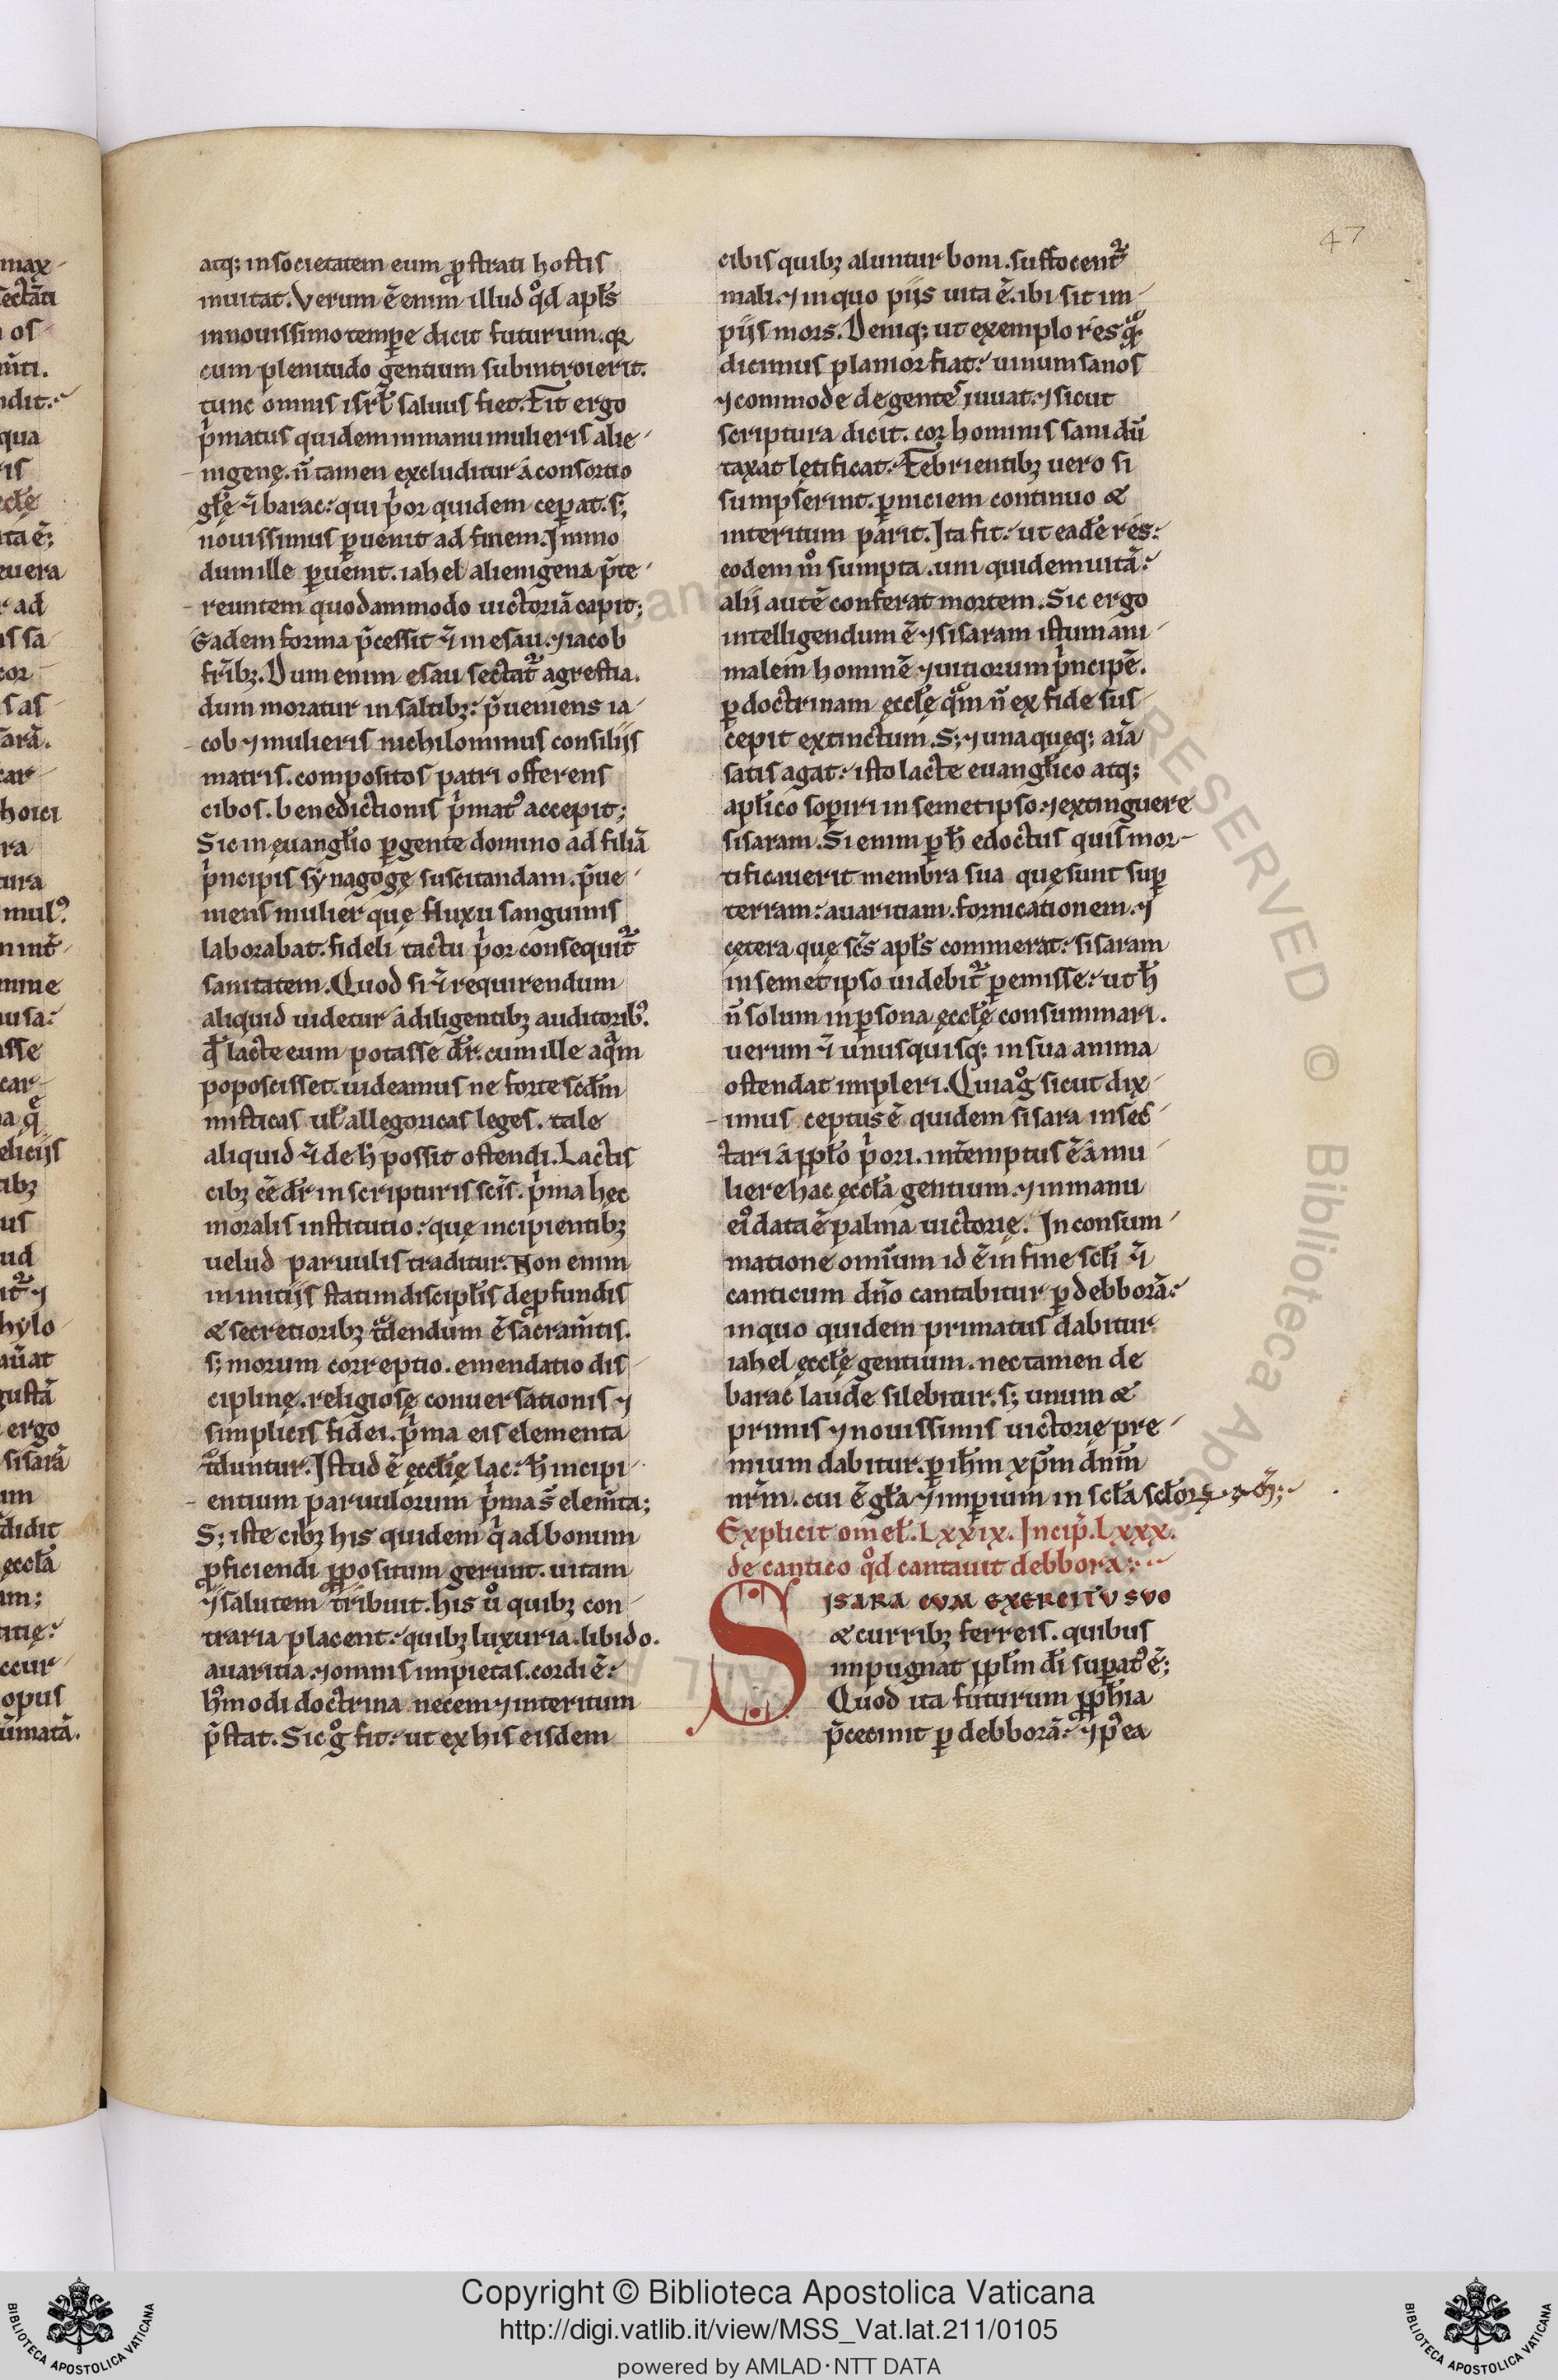 47
atq; in societatem eum ꝓstrati hostis
inuitat. Verum ē enim illud qͦd apl̄s
in nouissimo temꝑe dicit futurum. qꝛ
cum plenitudo gentium subintroierit.
tunc omnis isrl̄ saluus fiet. Fit ergo
pͥmatus quidem in manu mulieris alie-
nigenę. n̄ tamen excluditur á consortio
gl̄ę ⁊̄ barac: qui pͥor quidem ceꝑat. s;
nouissimus ꝑuenit ad finem. Immo
dum ille ꝑuenit. iahel alienigena p̄te-
reuntem quodammodo uictoriā capit;
Eadem forma p̄cessit ⁊̄ in esau. ⁊ iacob
fr̄ibꝫ. Dum enim esau sectat᷑ agrestia.
dum moratur in saltibꝫ: p̄ueniens ia-
cob ⁊ mulieris nichilominus consilijs
matris. compositos patri offerens
cibos. benedictionis pͥmatꝰ accepit;
Sic in ęuangl̄io ꝑgente domino ad filiā
pͥncipis synagogę suscitandam. p̄ue-
niens mulier quę fluxu sanguinis
laborabat. fideli tactu pͥor consequit᷑
sanitatem. Quod si ⁊̄ requirendum
aliquid uidetur á diligentibꝫ auditoribꝰ.
qd̄ lacte eum potasse dr̄. cum ille aqͣm
poposcisset. uideamus ne forte scdm̄
misticas ul̄ allegoricas leges. tale
aliquid ⁊̄ de h̄ possit ostendi. Lactis
cibꝫ ēē dr̄ in scripturis sc̄is. pͥma hęc
moralis institutio: quę incipientibꝫ
uelud paruulis traditur. Non enim
in initijs statim discipl̄is de ꝓfundis
& secretioribꝫ tͣdendum ē sacram̄tis.
s; morum correptio. emendatio dis-
ciplinę. religiosę conuersationis ⁊
simplicis fidei. pͥma eis elementa
tͣduntur. Istud ē ęccl̄ię lac: h̄ incipi-
entium paruulorum pͥma s̄ elem̄ta;
S; iste cibꝫ his quidem qͥ ad bonum
ꝓficiendi ꝓpositum gerunt. uitam
⁊ salutem tribuit. his uͦ quibꝫ con-
traria placent: quibꝫ luxuria. libido.
auaritia. ⁊ omnis impietas. cordi ē:
hꝰmodi doctrina necem ⁊ interitum
p̄stat. Sic gͦ fit: ut ex his eisdem
cibis quibꝫ aluntur boni. suffocent᷑
mali. ⁊ in quo pijs uita ē. ibi sit im-
pijs mors. Deniq; ut exemplo res qͣ
dicimus planior fiat: uinum sanos
⁊ commode degentes iuuat. ⁊ sicut
scriptura dicit. cor hominis sani dū
taxat lętificat. Febrientibꝫ uero si
sumpserint. ꝑniciem continuo &
interitum parit. Ita fit: ut eadē res:
eodem mͦ sumpta. uni quidem uitā:
alij autē conferat mortem. Sic ergo
intelligendum ē ⁊ sisaram istum ani-
malem hominē ⁊ uitiorum pͥncipē.
ꝑ doctrinam ęccl̄ę qͦm n̄ ex fide sus-
cepit extinctum. S; ⁊ unaquęq; aīa
satis agat: isto lacte euangl̄ico atq;
apl̄ico soꝑiri in semetipso. ⁊ extinguere
sisaram. Si enim ꝑ h̄ edoctus quis mor-
tificauerit membra sua quę sunt suꝑ
terram: auaritiam. fornicationem. ⁊
cętera quę sc̄s apl̄s commerat: sisaram
in semetipso uidebit᷑ ꝑemisse: ut h̄
n̄ solum in ꝑsona ęccl̄ę consummari.
uerum ⁊̄ unusquisq; in sua anima
ostendat impleri. Quia gͦ sicut dix-
imus ceptus ē quidem sisara insec-
tari á ppl̄o pͥori. int̄emptus ē á mu-
liere hac ęccl̄a gentium. ⁊ in manu
eiꝰ data ē palma uictorię. In consum-
matione omīum id ē in fine scl̄i ⁊̄
canticum dn̄o cantabitur ꝑ debborā:
in quo quidem primatus dabitur
iahel ęccl̄ę gentium. nec tamen de
barac laude silebitur. s; unum &
primis ⁊ nouissimis uictorię pre-
mium dabitur. ꝑ ih̄m xp̄m dn̄m
nr̄m. cui ē gl̄a ⁊ imꝑium in scl̄a scl̄oꝝ.
Explicit omel̄. Lxxix. Incip̄. Lxxx.
de cantico qͦd cantauit debbora:
SISARA CVM EXERCITV SVO
& curribꝫ ferreis. quibus
impugnat ppl̄m dī suꝑatꝰ ē;
Quod ita futurum ꝓph̄ia
p̄cecinit ꝑ debborā: ⁊ pꝰ ea
Copyright © Biblioteca Apostolica Vaticana
http://digi.vatlib.it/view/MSS_Vat.lat.211/0105
powered by AMLAD·NTT DATA
BIBLIOTECA APOSTOLICA VATICANA
BIBLIOTECA APOSTOLICA VATICANA